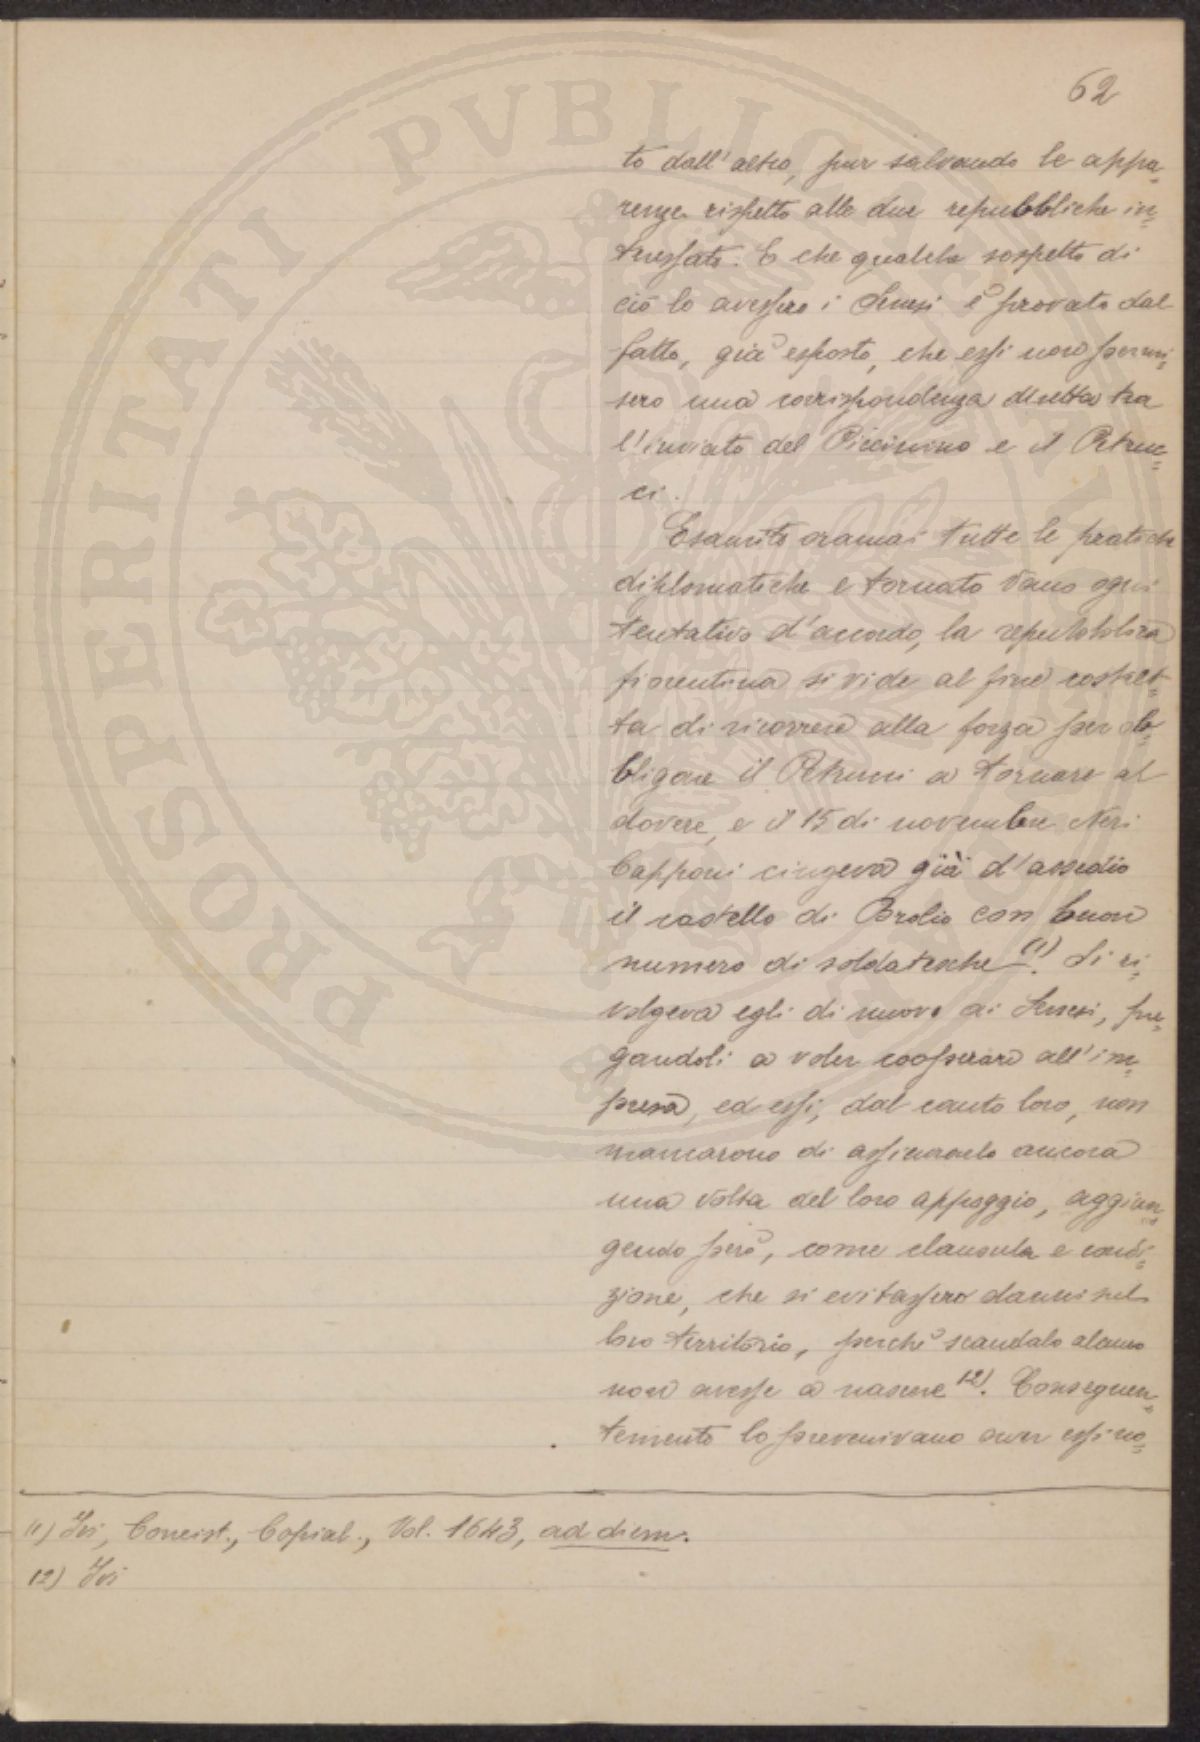 62
to dall'altro, pur salvando le appa=
renze rispetto alle due repubbliche in=
teressate. E che qualche sospetto di
ciò lo avessero i Senesi è provato dal
fatto, già esposto, che essi non permi=
sero una corrispondenza diretta tra
l'inviato del Piccinino e il Petruc=
ci.
Esaurite oramai tutte le pratiche
diplomatiche e tornato vano ogni
tentativo d'accordo, la repubblica
fiorentina si vide al fine costret=
ta di ricorrere alla forza per ob=
bligare il Petrucci a tornare al
dovere, e il 15 di novembre Neri
Capponi cingeva già d'assedio
il castello di Brolio con buon
numero di soldatesche (1). Si ri=
volgeva egli di nuovo ai Senesi, pre=
gandoli a voler cooperare all'im=
presa, ed essi, dal canto loro, non
mancarono di assicurarlo ancora
una volta del loro appoggio, aggiun=
gendo però, come clausula e condi=
zione, che si evitassero danni nel
loro territorio, perchè scandalo alcuno
non avesse a nascere (2). Conseguen=
temente lo prevenivano aver essi no=
(1) Ivi, Concist., Copial., Vol. 1643, ad diem.
(2) Ivi
PROSPERITATI PVBLICAE